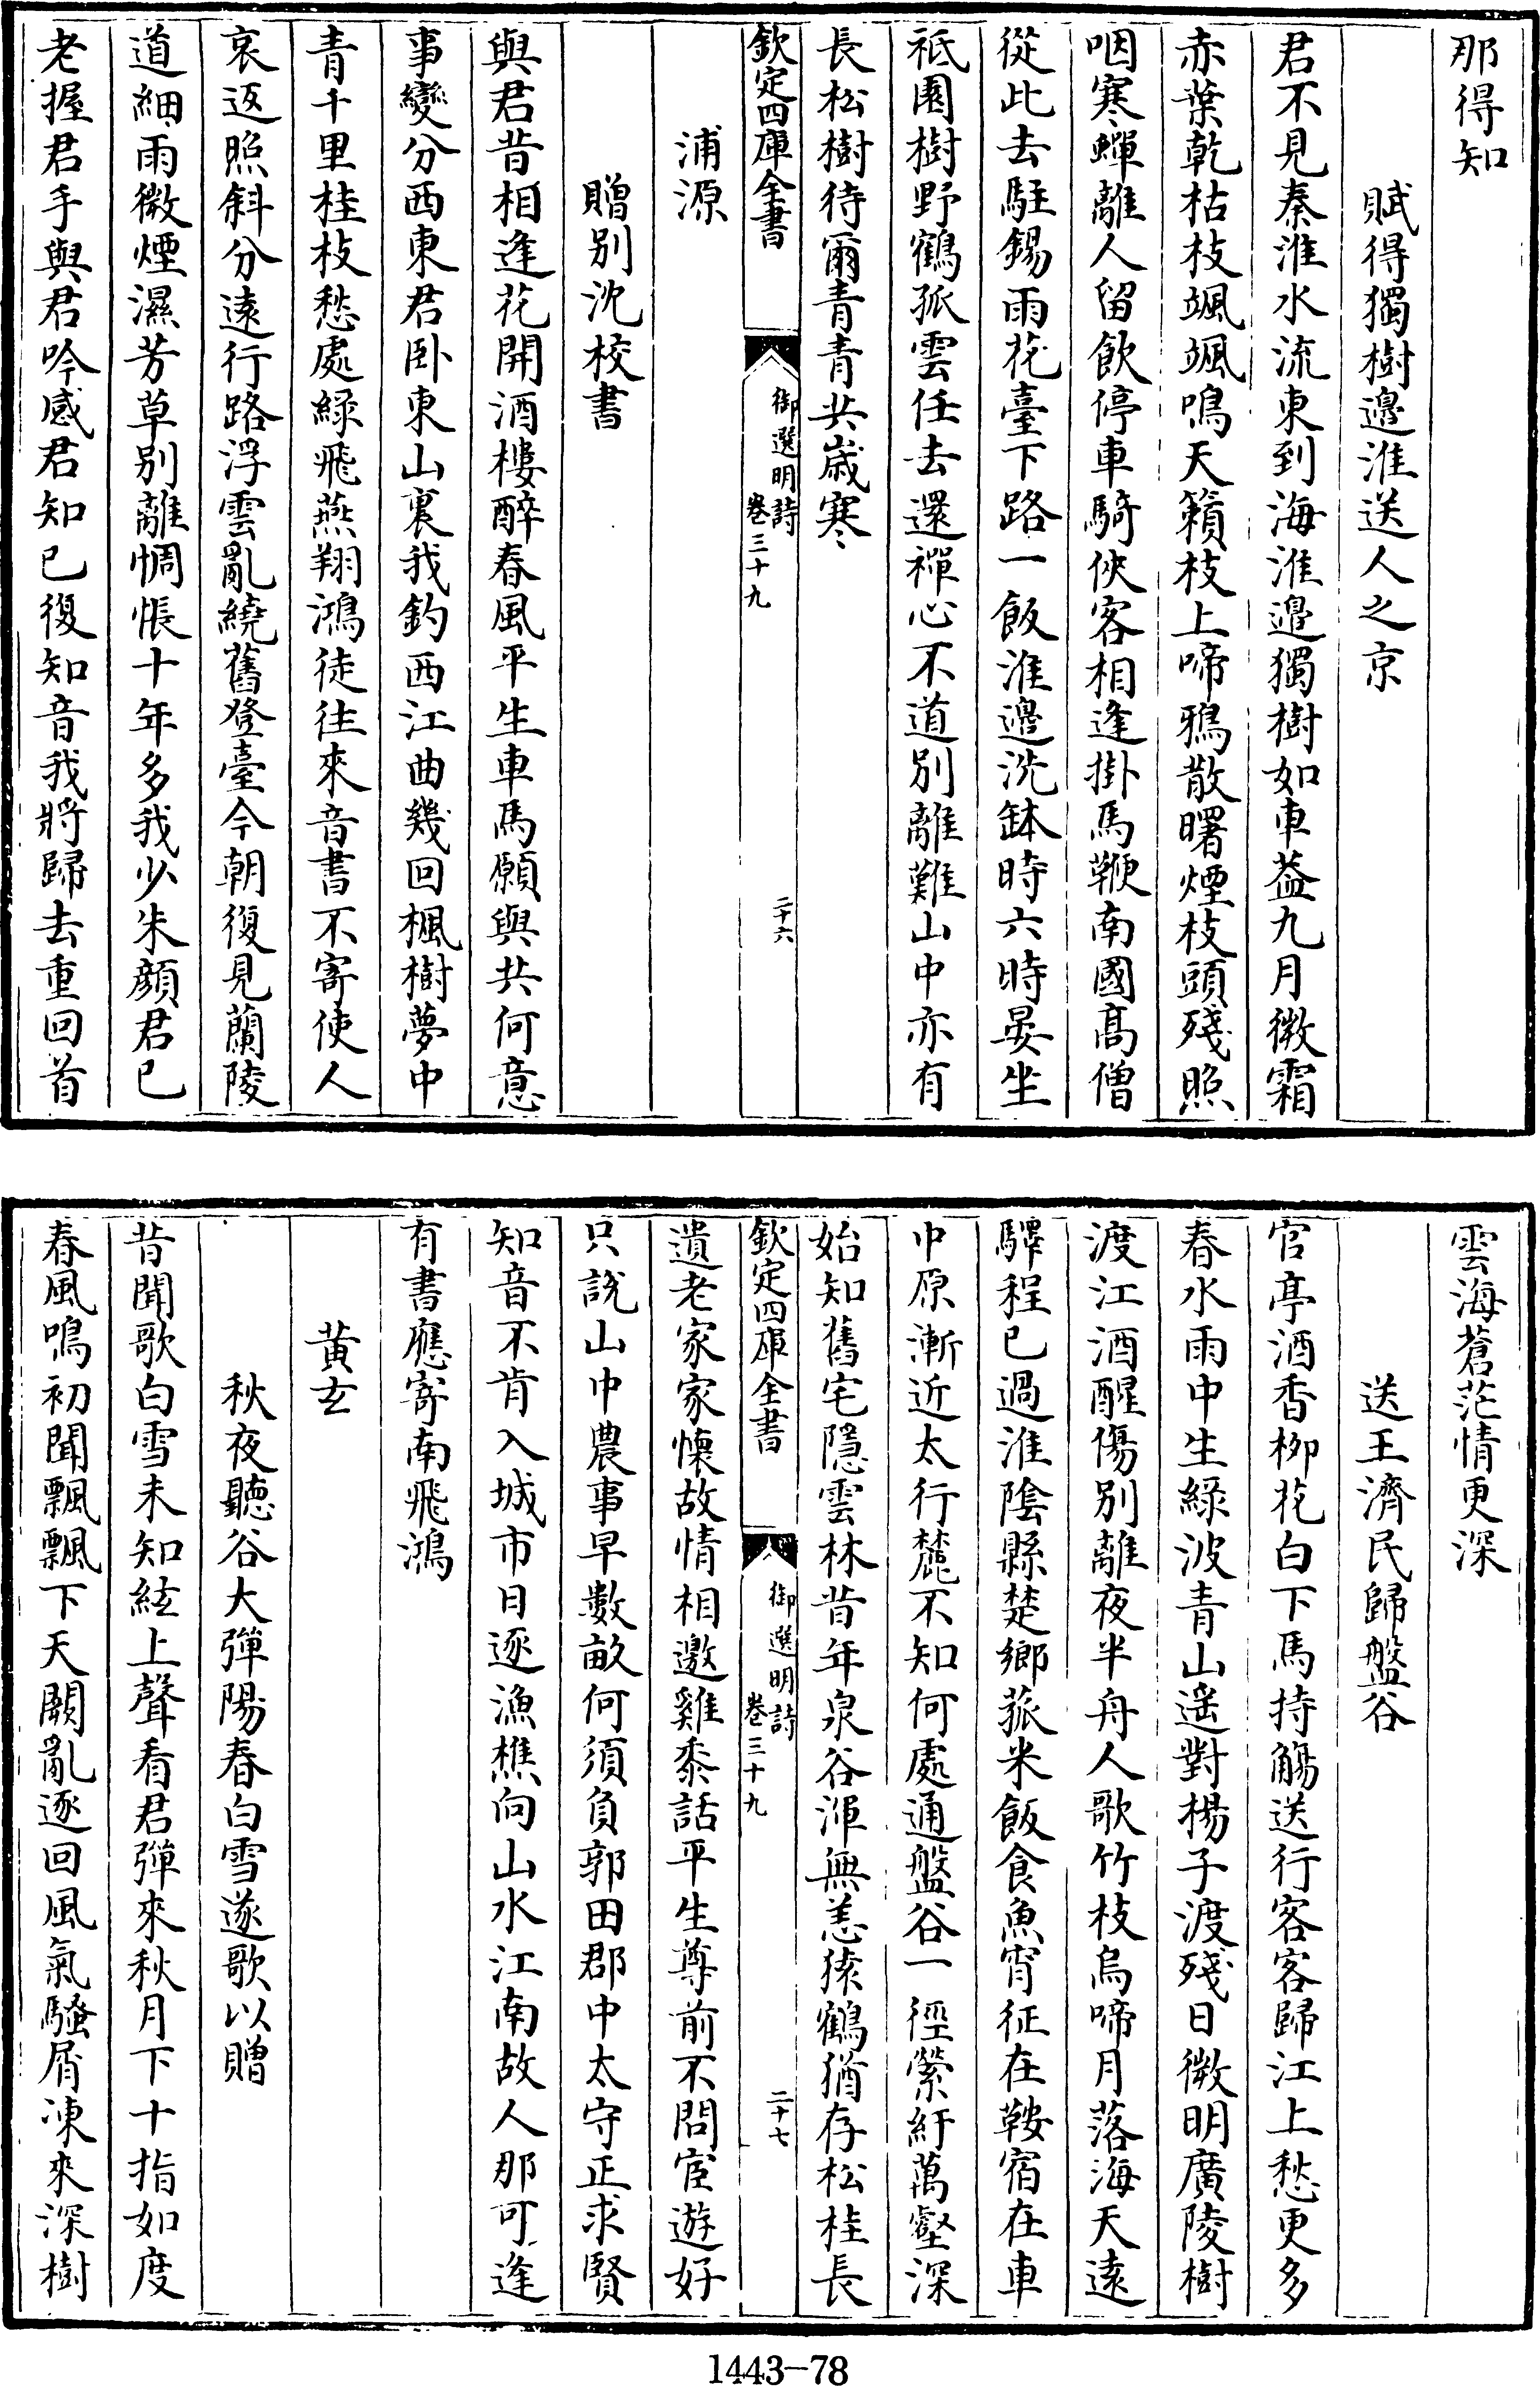 那得知
賦得獨樹邊淮送人之京
君不見秦淮水流東到海淮邊獨樹如車蓋九月微霜
赤葉乾枯枝颯颯鳴天籟枝上啼鴉散曙煙枝頭殘照
咽寒蟬離人留飲停車騎俠客相逢掛馬鞭南國高僧
從此去駐錫雨花臺下路一飯淮邊洗缽時六時晏坐
祗園樹野鶴孤雲任去還禪心不道別離難山中亦有
長松樹待爾青青共歲寒
欽定四庫全書
御選明詩
卷三十九
二十六
浦源
贈別沈校書
與君昔相逢花開酒樓醉春風平生車馬願與共何意
事變分西東君卧東山裏我釣西江曲幾回楓樹夢中
青千里桂枝愁處綠飛燕翔鴻徒往來音書不寄使人
哀返照斜分遠行路浮雲亂繞舊登臺今朝復見蘭陵
道細雨微煙濕芳草別離惆悵十年多我少朱顏君已
老握君手與君吟感君知己復知音我將歸去重回首
雲海蒼茫情更深
送王濟民歸盤谷
官亭酒香柳花白下馬持觴送行客客歸江上愁更多
春水雨中生綠波青山遥對楊子渡殘日微明廣陵樹
渡江酒醒傷別離夜半舟人歌竹枝烏啼月落海天遠
驛程已過淮陰縣楚鄉菰米飯食魚宵征在鞍宿在車
中原漸近太行麓不知何處通盤谷一徑縈紆萬壑深
始知舊宅隱雲林昔年泉谷渾無恙猿鶴猶存松桂長
欽定四庫全書
御選明詩
卷三十九
二十七
遺老家家懷故情相邀雞黍話平生尊前不問宦遊好
只說山中農事早數畝何須負郭田郡中太守正求賢
知音不肯入城市日逐漁樵向山水江南故人那可逢
有書應寄南飛鴻
黃玄
秋夜聽谷大彈陽春白雪遂歌以贈
昔聞歌白雪未知絃上聲看君彈來秋月下十指如度
春風鳴初聞飄飄下天闕亂逐回風氣騷屑凍來深樹
1443-78